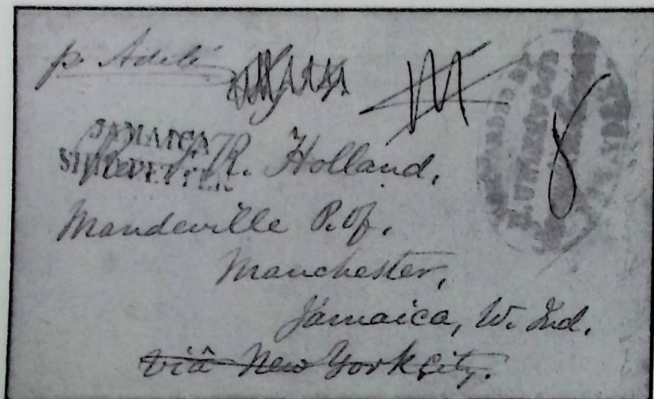 pr Adelé
JAMAICA
SHIP LETTER
R. Holland,
Mandeville P. Of,
Manchester,
Jamaica, W. Ind.
viâ New York City.
FORWARDED BY
8